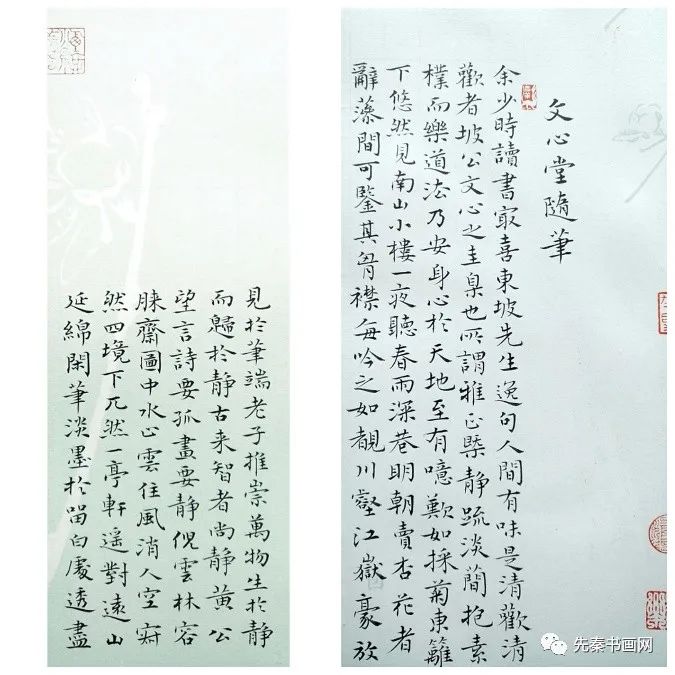 文心堂隨筆
余少時讀書冣喜東坡先生逸句人間有味是清歡清
歡者坡公文心之圭臬也所謂雅正槩靜疏淡蕳抱素
樸而樂道法乃安身心於天地至有噫歎如採菊東籬
下悠然見南山小樓一夜聽春雨深巷明朝賣杏花者
辭藻間可鑒其胷襟每吟之如觀川壑江嶽豪放
見於筆端老子推崇萬物生於靜
而歸於靜古来智者尚靜黄公
望言詩要孤畫要靜倪雲林容
膝齋圖中水止雲住風消人空寂
然四境下兀然一亭軒遥對遠山
延綿閑筆淡墨於留白處透盡
先秦书画网